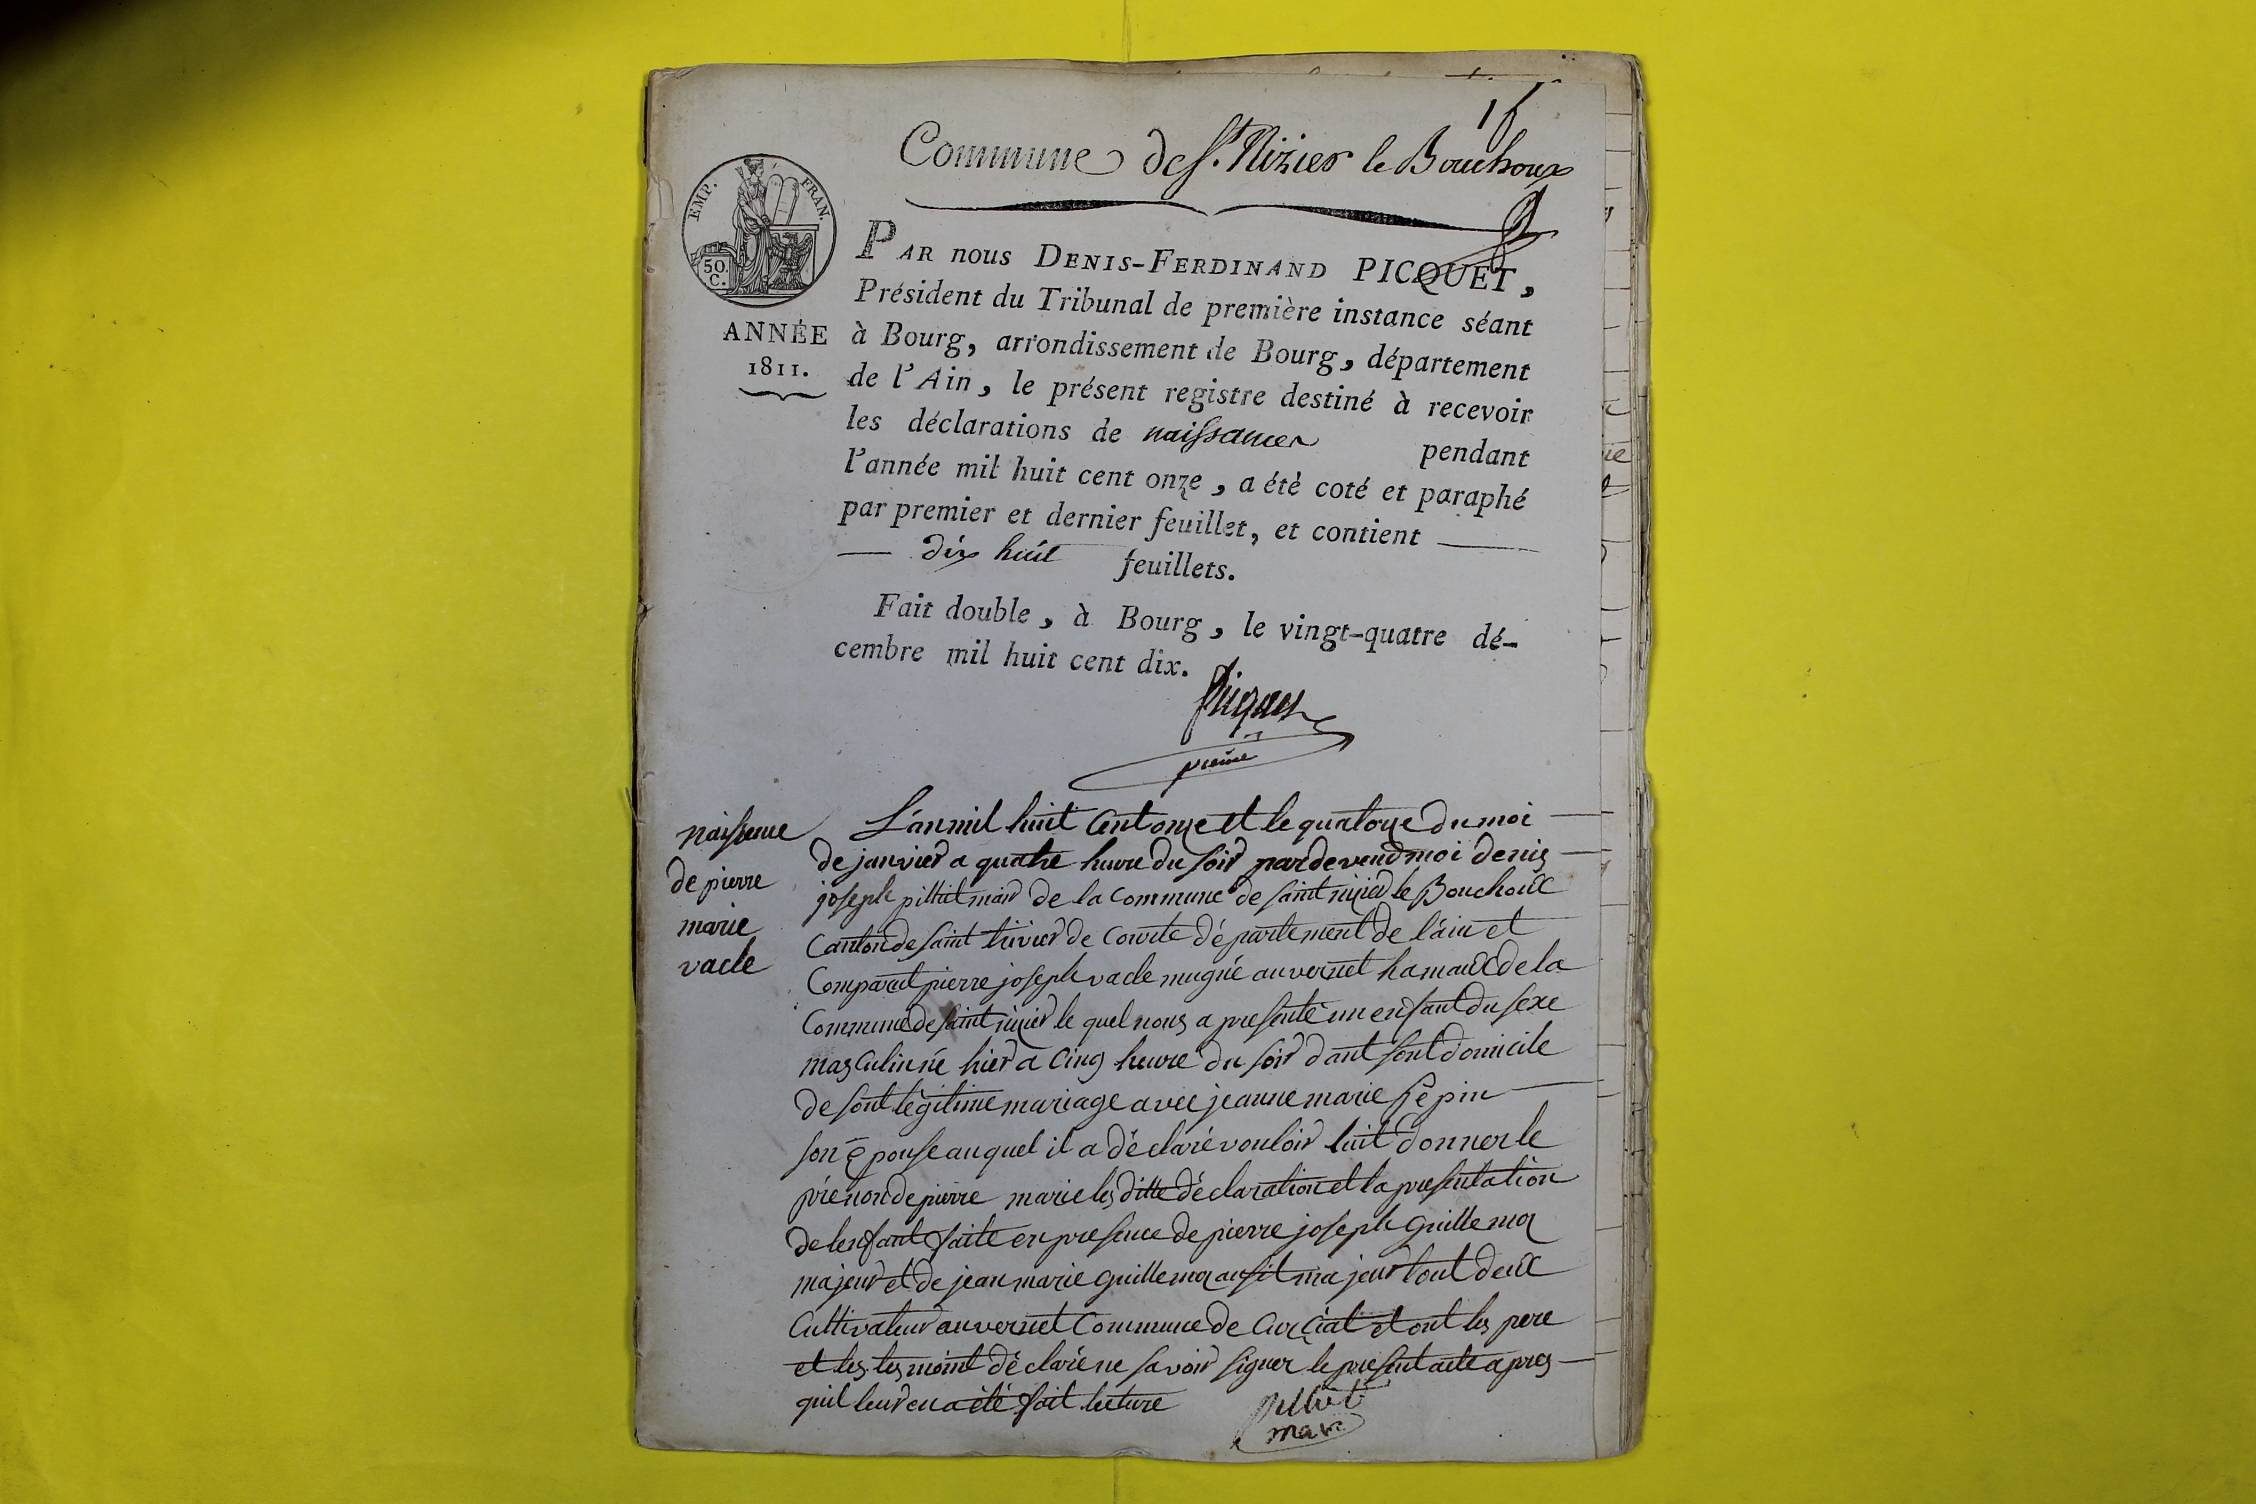 1
Commune de St. Nizier le Bouchoux
EMP. FRAN.
50. C.
ANNÉE
1811.
PAR nous DENIS-FERDINAND PICQUET,
Président du Tribunal de première instance séant
à Bourg, arrondissement de Bourg, département
de l'Ain, le présent registre destiné à recevoir
les déclarations de naissances pendant
l'année mil huit cent onze, a été coté et paraphé
par premier et dernier feuillet, et contient
dix huit feuillets.
Fait double, à Bourg, le vingt-quatre dé-
cembre mil huit cent dix.
Picquet
naissance
de pierre
marie
vacle
L'an mil huit Cent onze et le quatorze du moi
de janvier a quatre heure du soir pardevend moi denis
joseph pilliet mair de la Commune de saint nizier le Bouchoux
Canton de saint trivier de Courte département de l'ain et
Comparut pierre joseph vacle mugnié au vernet hamaux de la
Commune de saint nizier le quel nous a presenté un enfant du sexe
masculin né hier a Cinq heure du soir dant sont domicile
de sont légitime mariage avec jeanne marie Pépin
son épouse auquel il a déclaré vouloir luit donner le
prénon de pierre marie les ditte déclaration et la presentation
de lenfant faite en presence de pierre joseph guillemoz
majeur et de jean marie guillemoz ausit majeur tout deux
Cultivateur au vernet Commune de Curciat et ont les pere
et les tesmoint déclaré ne savoir signer le present acte apres
quil leur en a été fait lecture
pilliet
mair